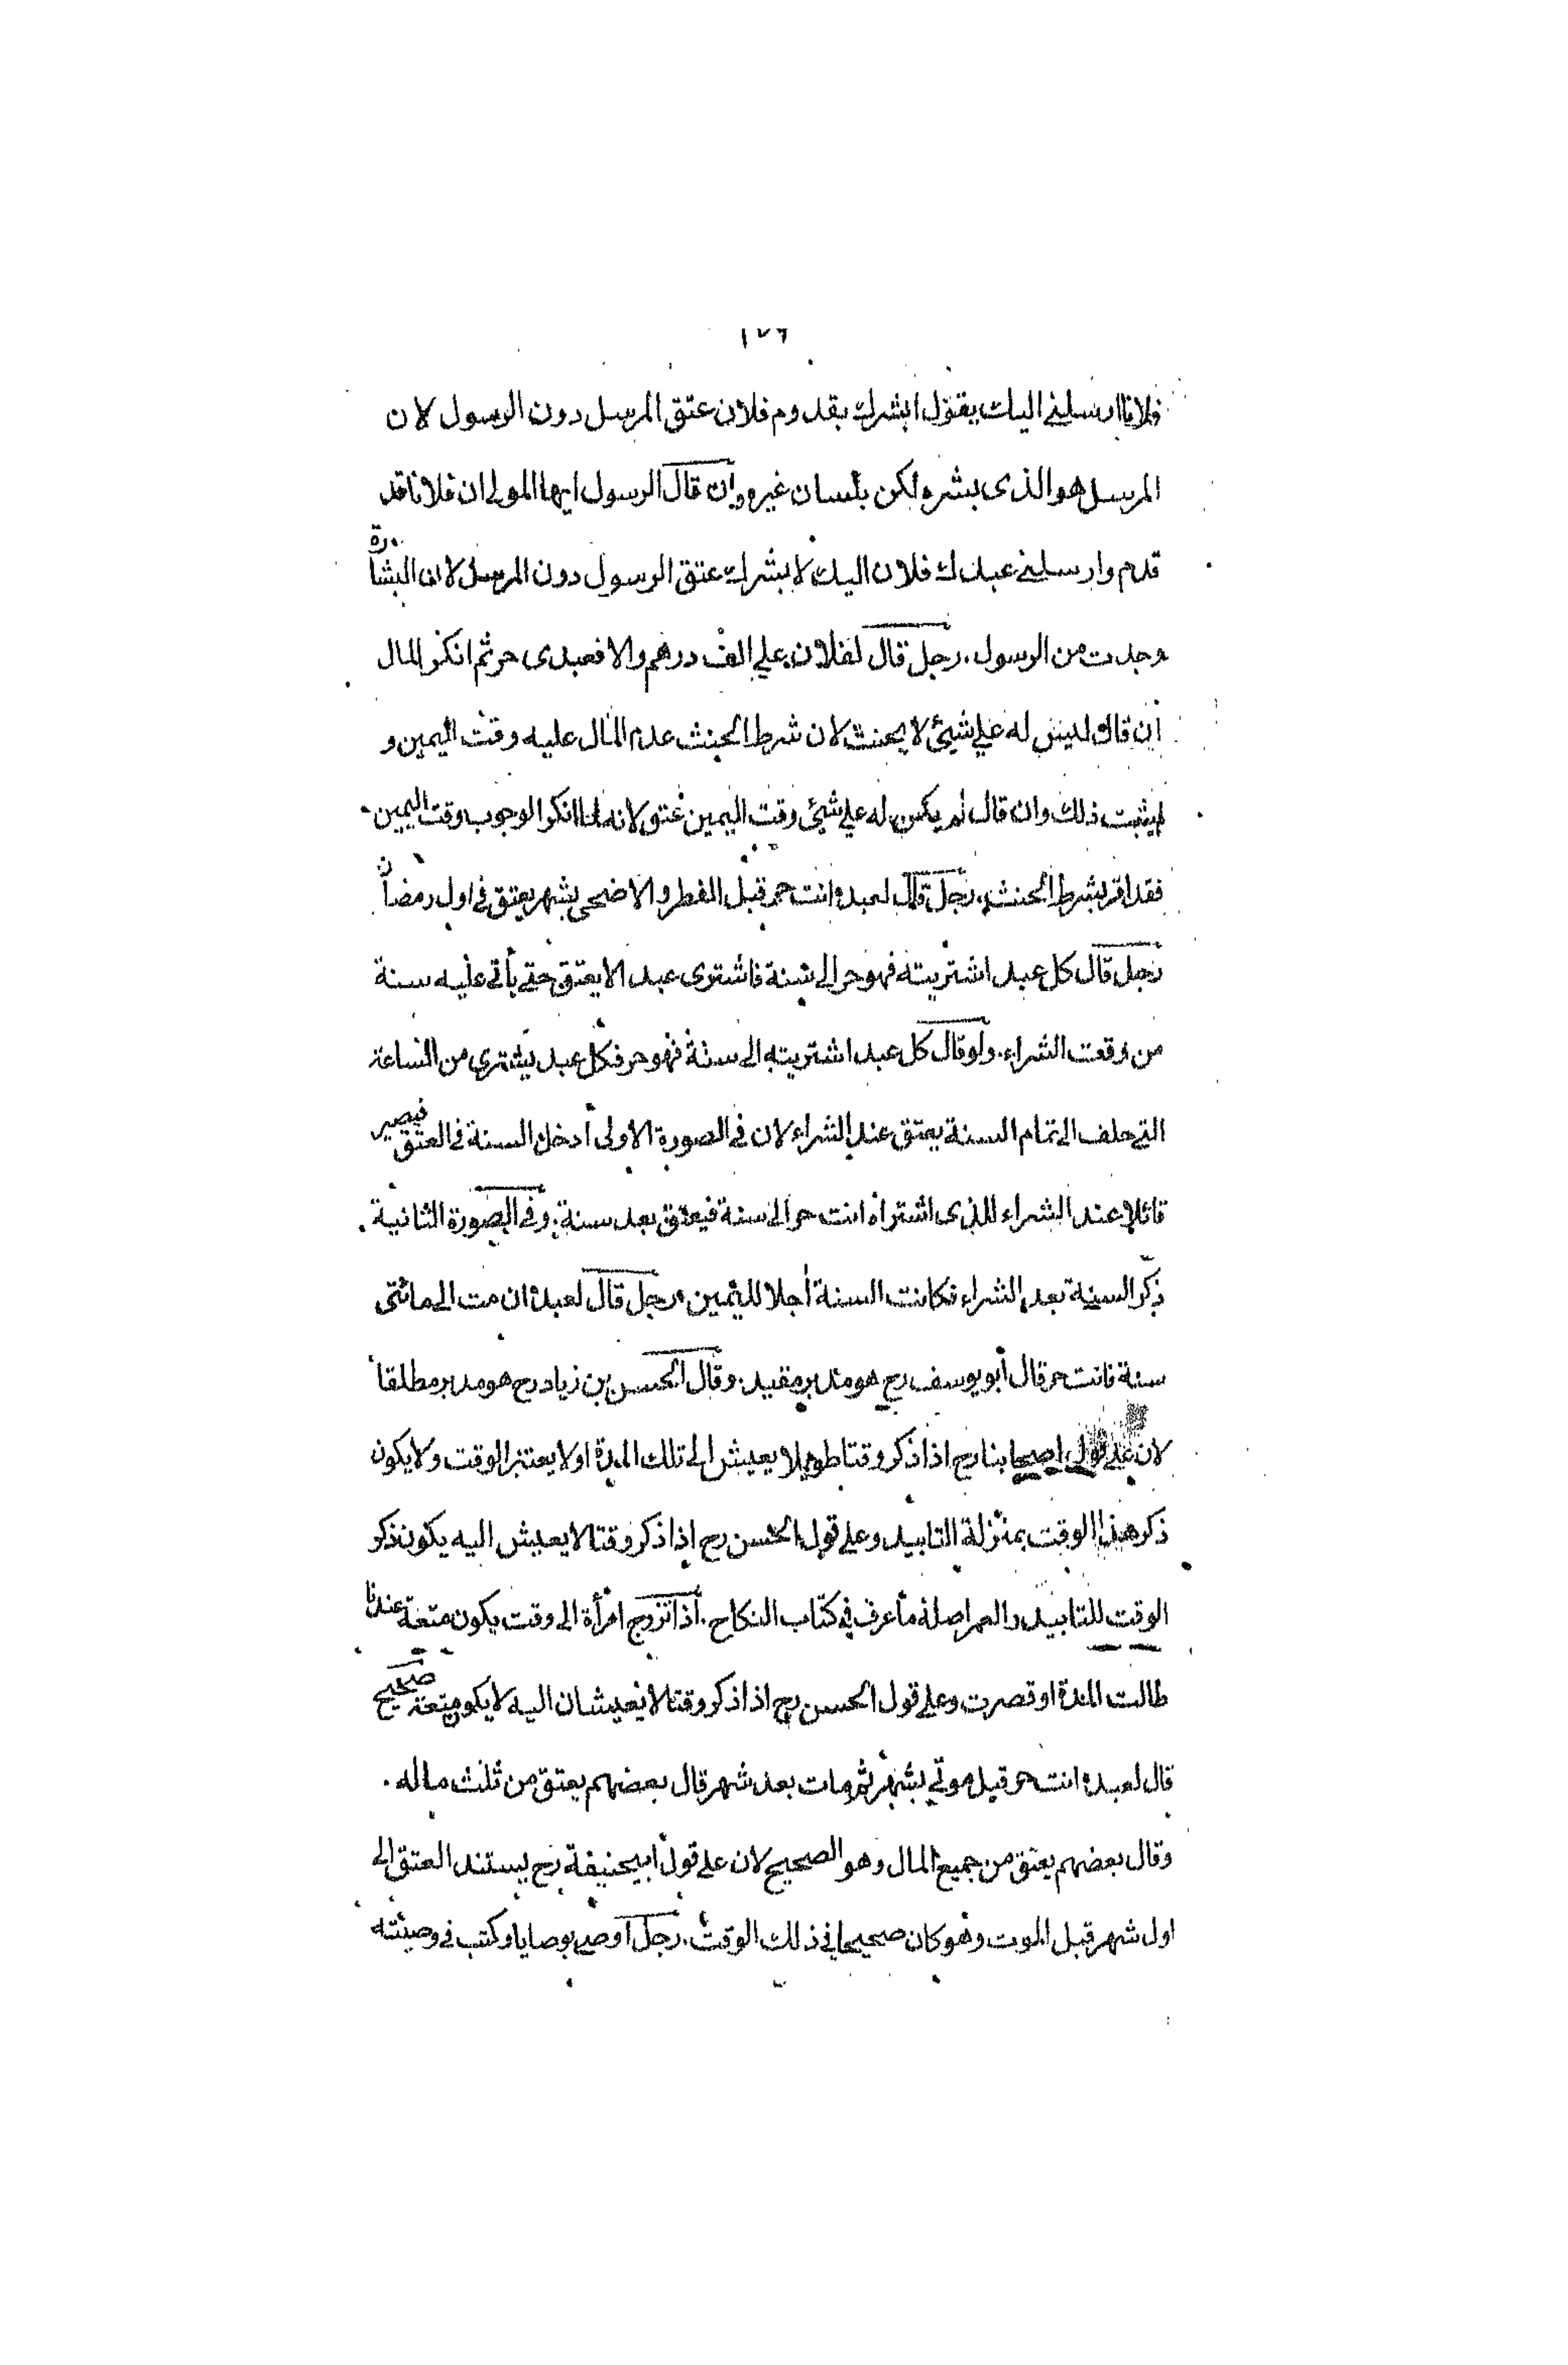 ١٧٦
فلانا ارسلني اليك يقول ابشرك بقدوم فلان عتق المرسل دون الرسول لان
المرسل هو الذى بشره لكن بلسان غيره وان قال الرسول ايها المولى ان فلانا قد
قدم وارسلني عبدك فلان اليك لابشرك عتق الرسول دون المرسل لان البشارة
وجدت من الرسول . رجل قال لفلان علي الف درهم والا فعبدى حر ثم انكر المال
ان قال ليس له علي شيئ لا يحنث لان شرط الحنث عدم المال عليه وقت اليمين و
لم يثبت ذلك وان قال لم يكن له علي شيئ وقت اليمين عتق لانه لما انكر الوجوب وقت اليمين
فقد اقر بشرط الحنث . رجل قال لعبده انت حر قبل الفطر والاضحى بشهر يعتق في اول رمضان
رجل قال كل عبد اشتريته فهو حر الى سنة فاشترى عبدا لا يعتق حتى يأتي عليه سنة
من وقت الشراء . ولو قال كل عبد اشتريته الى سنة فهو حر فكل عبد يشتري من الساعة
التي حلف الى تمام السنة يعتق عند الشراء لان في الصورة الاولى أدخل السنة في العتق فيصير
قائلا عند الشراء للذى اشتراه انت حر الى سنة فيعتق بعد سنة . وفي الصورة الثانية
ذكر السنة بعد الشراء فكانت السنة أجلا لليمين . رجل قال لعبده ان مت الى مائتى
سنة فانت حر قال أبو يوسف رح هو مدبر مقيد . وقال الحسن بن زياد رح هو مدبر مطلقا
لان على قول اصحابنا رح اذا ذكر وقتا طويلا يعيش الى تلك المدة او لا يعتبر الوقت ولا يكون
ذكر هذا الوقت بمنزلة التابيد وعلى قول الحسن رح اذا ذكر وقتا لا يعيش اليه يكون ذكر
الوقت للتابيد والعمر اصله ما عرف في كتاب النكاح . اذا تزوج امرأة الى وقت يكون متعة عندنا
طالت المدة او قصرت وعلى قول الحسن رح اذا ذكر وقتا لا يعيشان اليه لا يكون متعة صحيح
قال لعبده انت حر قبل موتي بشهر ثم مات بعد شهر قال بعضهم يعتق من ثلث ماله .
وقال بعضهم يعتق من جميع المال وهو الصحيح لان على قول ابيحنيفة رح يستند العتق الى
اول شهر قبل الموت وهو كان صحيحا في ذلك الوقت . رجل أوصى بوصايا وكتب في وصيته